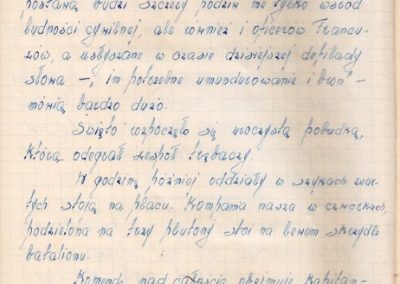 postawą budzi szczery podziw nie tylko wśród
ludności cywilnej, ale również i oficerów francu-
zów, a usłyszane w czasie dzisiejszej defilady
słowa – „im potrzebne umundurowanie i broń” –
mówią bardzo dużo.
Święto rozpoczęło się uroczystą pobudką,
którą odegrał zespół trębaczy.
W godzinę później oddziały w szykach zwar-
tych stoją na placu. Kompania nasza w czwórkach,
podzielona na trzy plutony stoi na lewem skrzydle
batalionu.
Komendę nad całością obejmuje kapitan-